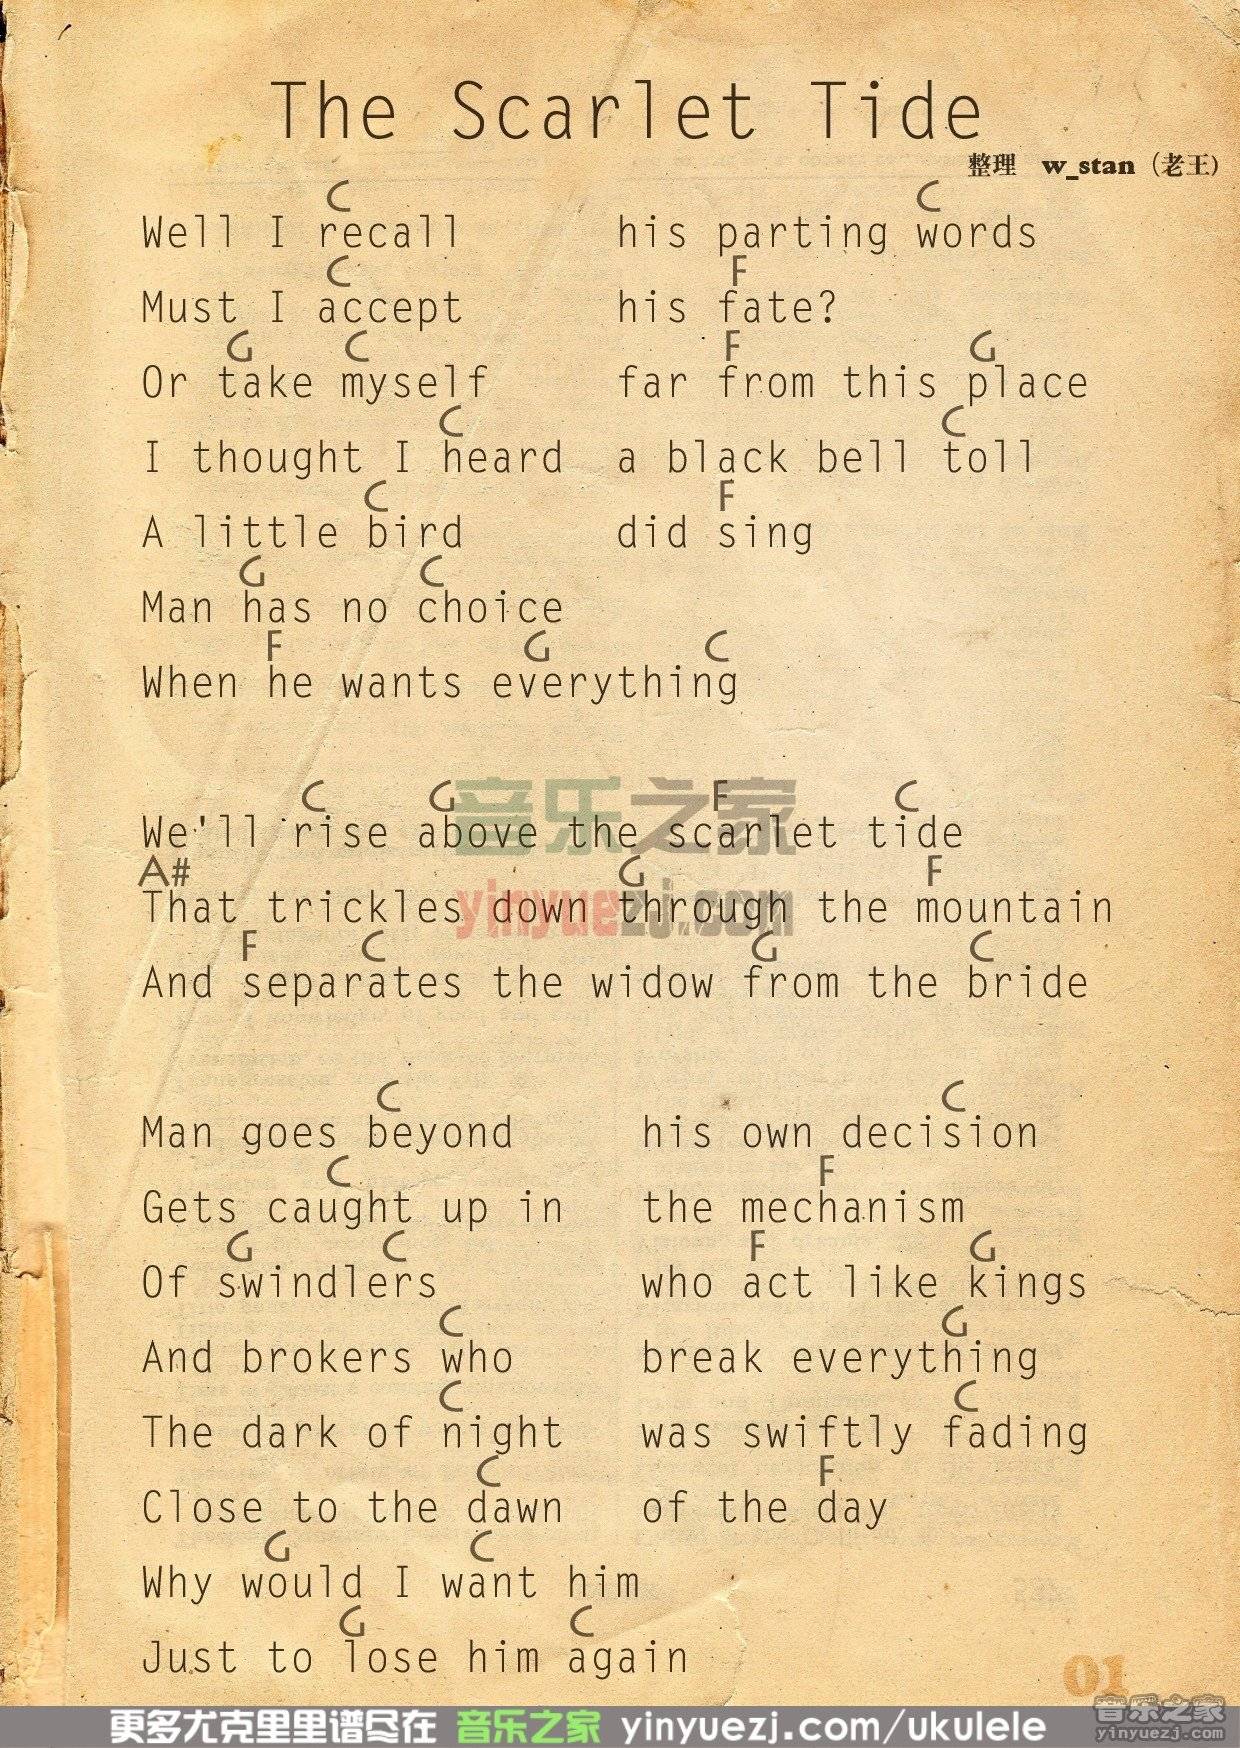 The Scarlet Tide
整理 w_stan (老王)
C C
Well I recall his parting words
C F
Must I accept his fate?
G C F G
Or take myself far from this place
C C
I thought I heard a black bell toll
C F
A little bird did sing
G C
Man has no choice
F G C
When he wants everything
C G F C
We'll rise above the scarlet tide
A# G F
That trickles down through the mountain
F C G C
And separates the widow from the bride
音乐之家
yinyuezj.com
C C
Man goes beyond his own decision
C F
Gets caught up in the mechanism
G C F G
Of swindlers who act like kings
C G
And brokers who break everything
C C
The dark of night was swiftly fading
C F
Close to the dawn of the day
G C
Why would I want him
G C
Just to lose him again
01
更多尤克里里谱尽在 音乐之家 yinyuezj.com/ukulele
音乐之家
yinyuezj.com